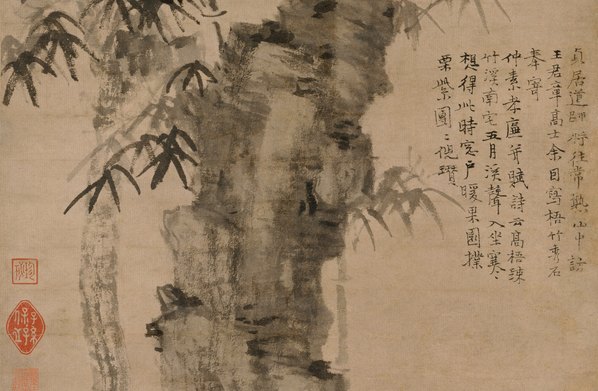 貞居道師將往常熟山中訪
王君章高士余因寫梧竹秀石
奉寄
仲素孝廉并賦詩云高梧疎
竹溪南宅五月溪聲入坐寒
想得此時窓戶暖果園撲
栗紫團〻倪瓚